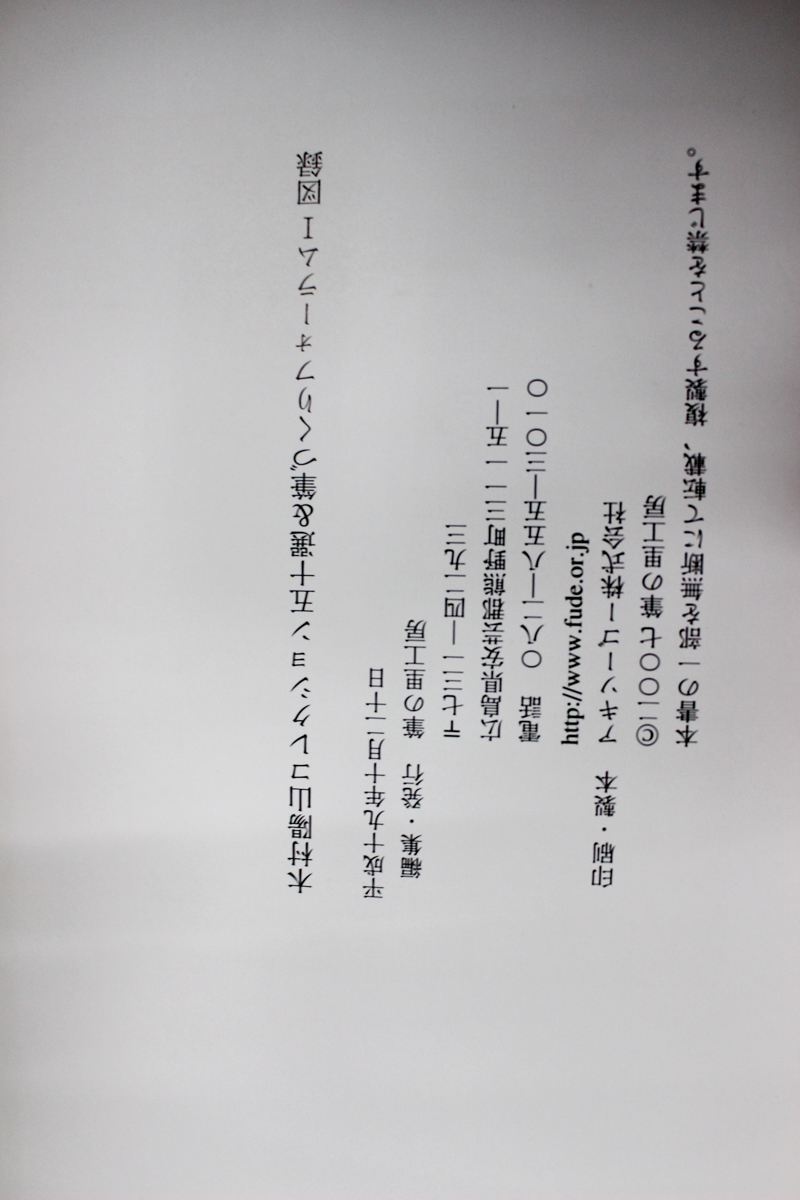 木村陽山コレクション五十選&筆づくりフォーラムI 図録
平成十九年十月二十日
編集・発行 筆の里工房
〒七三一―四二九三
広島県安芸郡熊野町三一一五―一
電話 〇八二―八五五―三〇一〇
http://www.fude.or.jp
印刷・製本 アキソーゴー株式会社
©二〇〇七 筆の里工房
本書の一部を無断にて転載、複製することを禁じます。